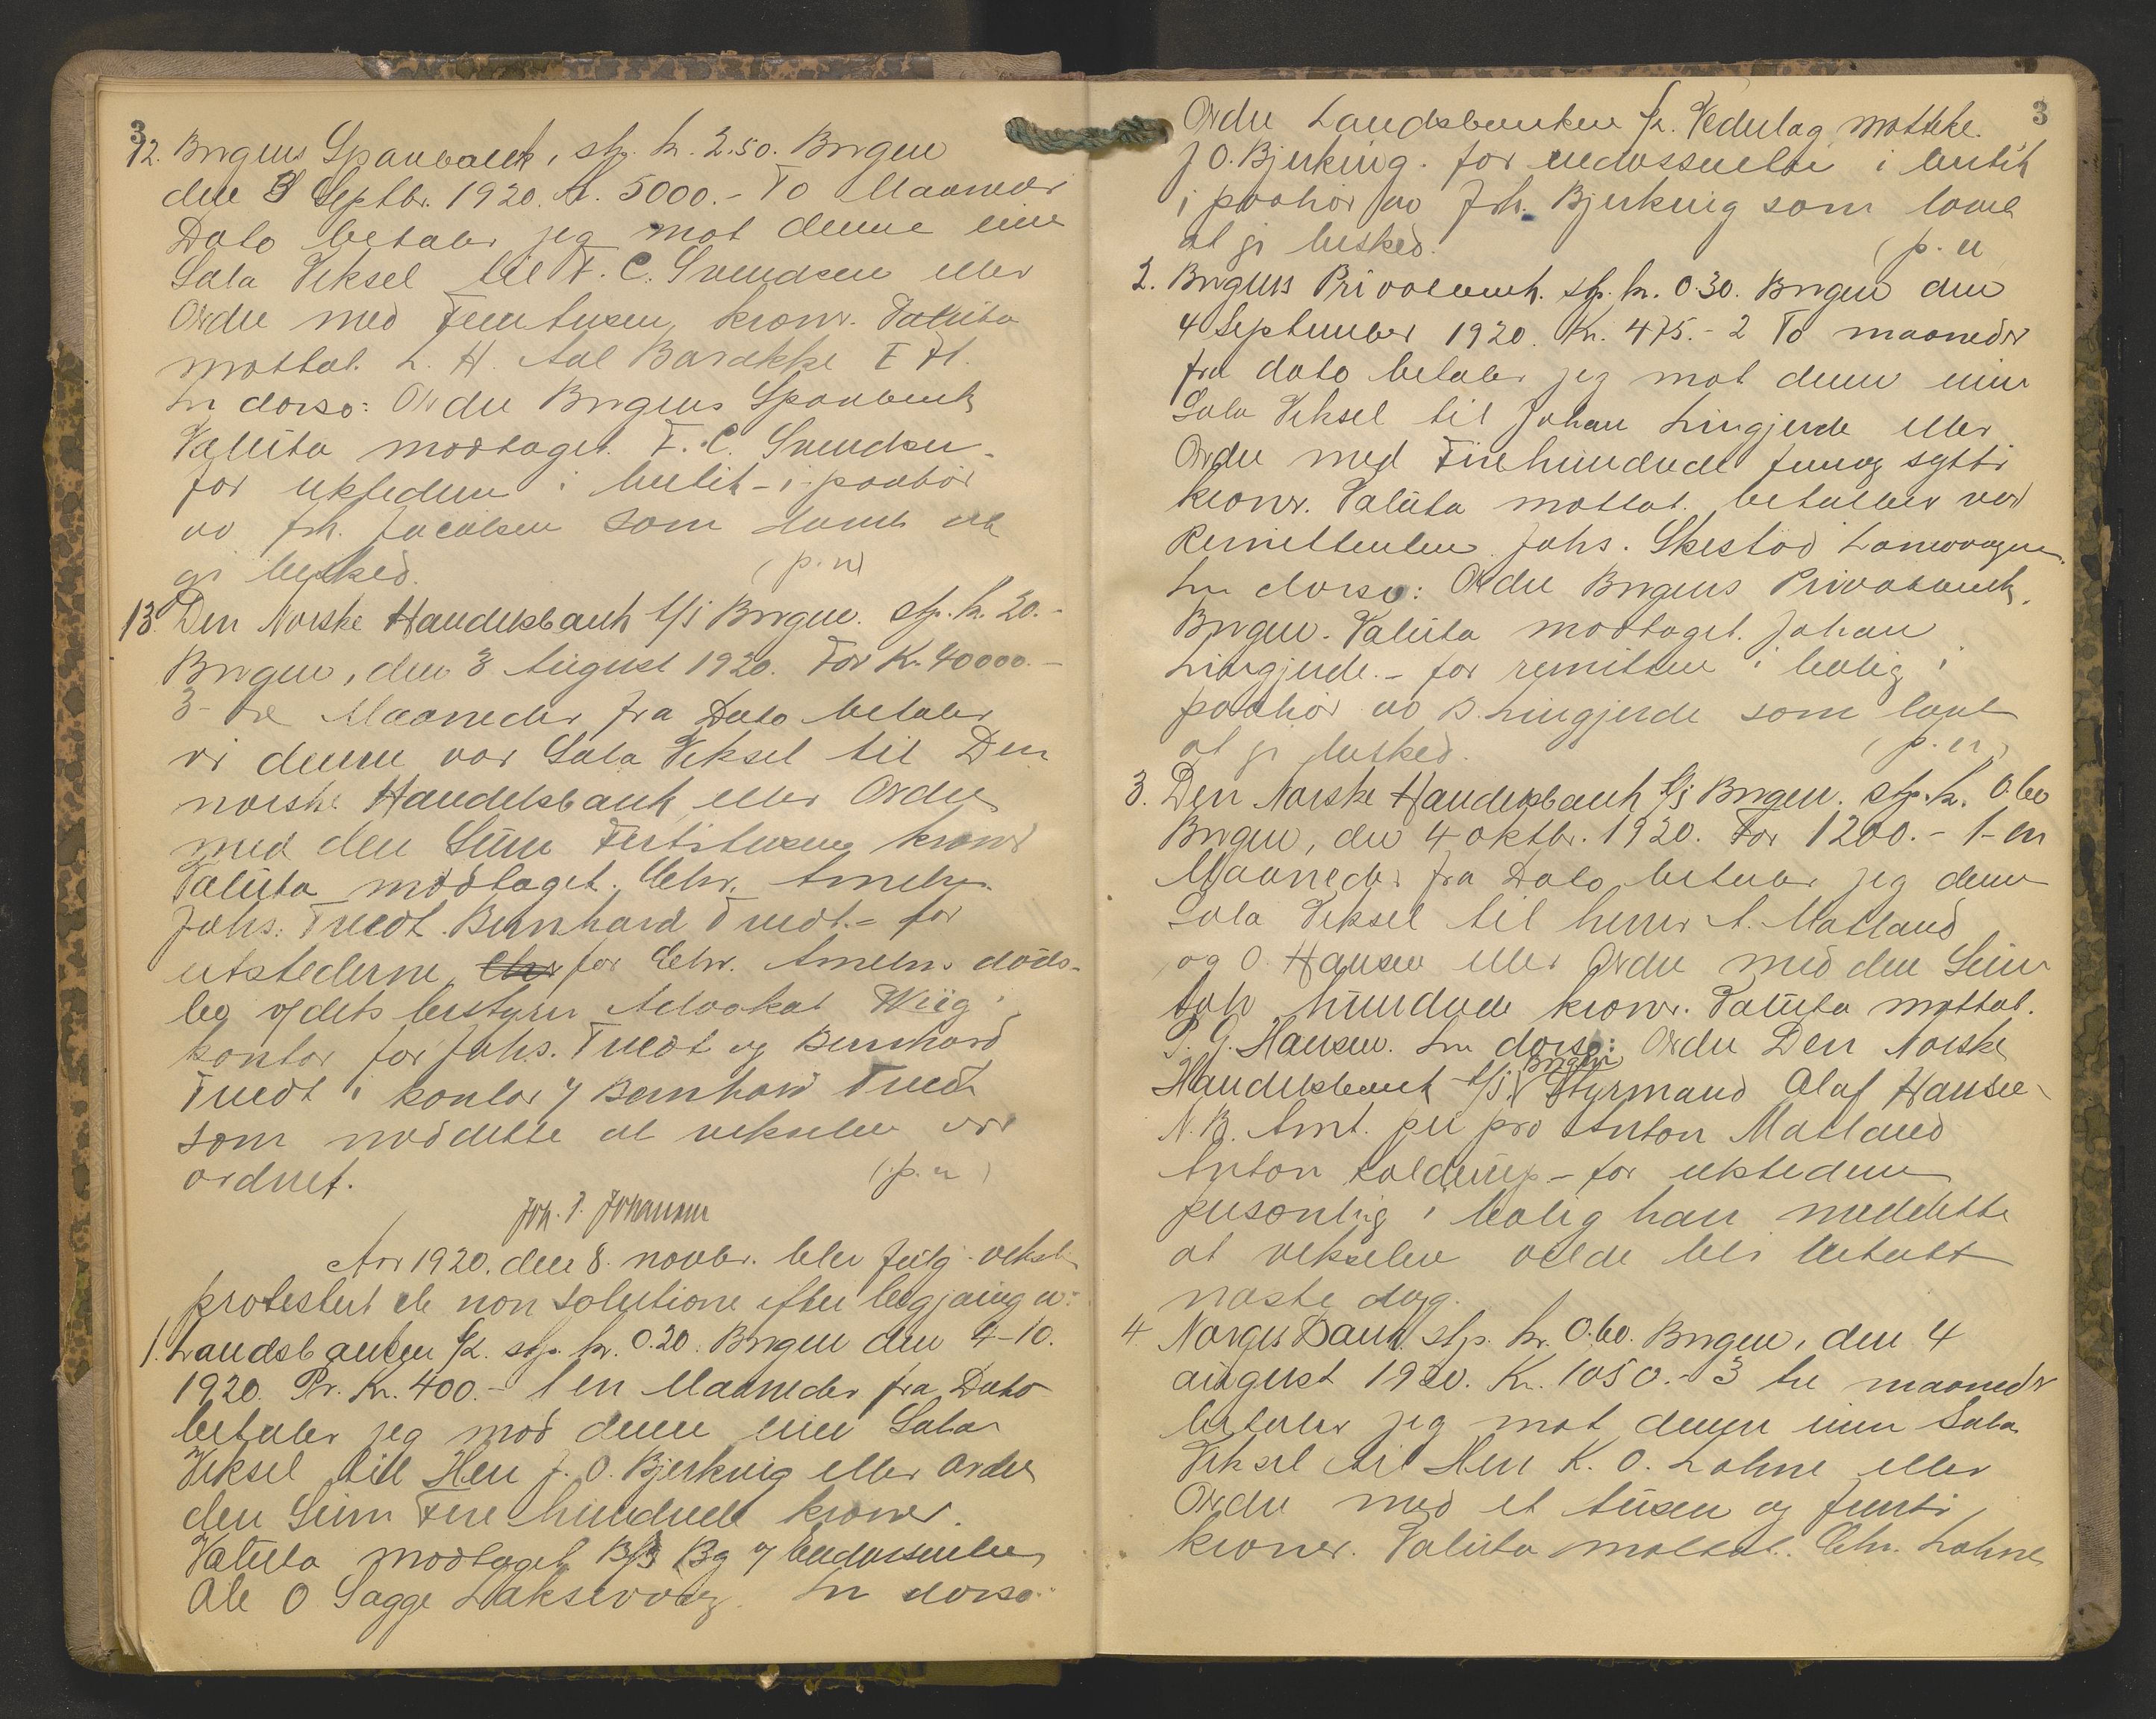 3
12. Bergens Sparebank, stp. kr. 2.50. Bergen
den 3 Septbr. 1920. Kr. 5000.- To Maaneder
Dato betaler jeg mot denne min
Sola Veksel til F. C. Svendsen eller
Ordre med Femtusen kroner. Valuta
mottat. L. H. Aal Barakke I Fl.
In dorso: Ordre Bergens Sparebank
Valuta modtaget. F. C. Svendsen -
for utstederen i butik i paahør
av frk. Jacobsen som lovet at
gi besked. (p. n)
13. Den Norske Handelsbank A/S Bergen. stp. kr. 20.-
Bergen, den 3 August 1920. For Kr. 40000.-
3- tre Maaneder fra Dato betaler
vi denne vor Sola Veksel til Den
norske Handelsbank eller Ordre
med den Sum Firtitusen kroner
Valuta modtaget. Chr. Ameln.
Johs. Tvedt. Bernhard Tvedt.- for
utstederne, Chr for Chr. Amelns døds-
bo v/ dets bestyrer Advokat Wiig i
kontor for Johs. Tvedt og Bernhard
Tvedt i kontor v/ Bernhard Tvedt
som meddelte at vekselen var
ordnet. (p. n)
Joh. P. Johansen
Aar 1920. den 8. novbr. blev følg. veksl.
protestert de non solutione efter begjæring av:
1. Landsbanken A/L. stp. kr. 0.20. Bergen den 4-10.
1920. Pr. Kr. 400.- 1 en Maaneder fra Dato
betaler jeg mod denne min Sola
Veksel till Herr J. O. Bjerkvig eller Ordre
den Sum Fire hundrede kroner.
Valuta modtaget B/S Bg v/ Endossenten
Ole O Sagge Laksevaag. In dorso:
3
Ordre Landsbanken A/L. Vederlag mottat.
J O. Bjerkvig. for endossenten i butik
i paahør av Joh. Bjerkvig som lovet
at gi besked. (p. n
2. Bergens Privatbank. stp. kr. 0.30. Bergen den
4 September 1920. Kr. 475.- 2 To maaneder
fra dato betaler jeg mot denne min
Sola Veksel til Johan Lingjerde eller
Ordre med Firehundrede femog sytti
kroner. Valuta mottat. betalbar ved
Remittenten. Johs. Skestad
In dorso: Ordre Bergens Privatbank,
Bergen. Valuta modtaget. Johan
Lingjerde.- for remitten i bolig i
paahør av B. Lingjerde som lovet
at gi besked. (p. n)
3. Den Norske Handelsbank A/S Bergen. stp. kr. 0.60
Bergen, den 4 oktbr. 1920. For 1200.- 1- en
Maaneder fra Dato betaler jeg denne
Sola Veksel til herrer A. Matland
og O. Hansen eller Ordre med den Sum
tolv hundrede kroner. Valuta mottat.
P. G. Hansen. In dorso: Ordre Den Norske
Handelsbank A/S. Bergen Styrmand Olaf Hansen
N. B. Amt. per pro Anton Matland
Anton Kolderup.- for utstederen
personlig i bolig han meddelte
at vekselen vilde bli betalt
næste dag.
4 Norges Bank. stp. kr. 0.60. Bergen, den 4
august 1920. Kr. 1050.- 3 tre maaneder
betaler jeg mot denne min Sola
Veksel til Herr K. O. Lohne eller
Ordre med et tusen og femti
kroner. Valuta mottat. Chr. Lohne